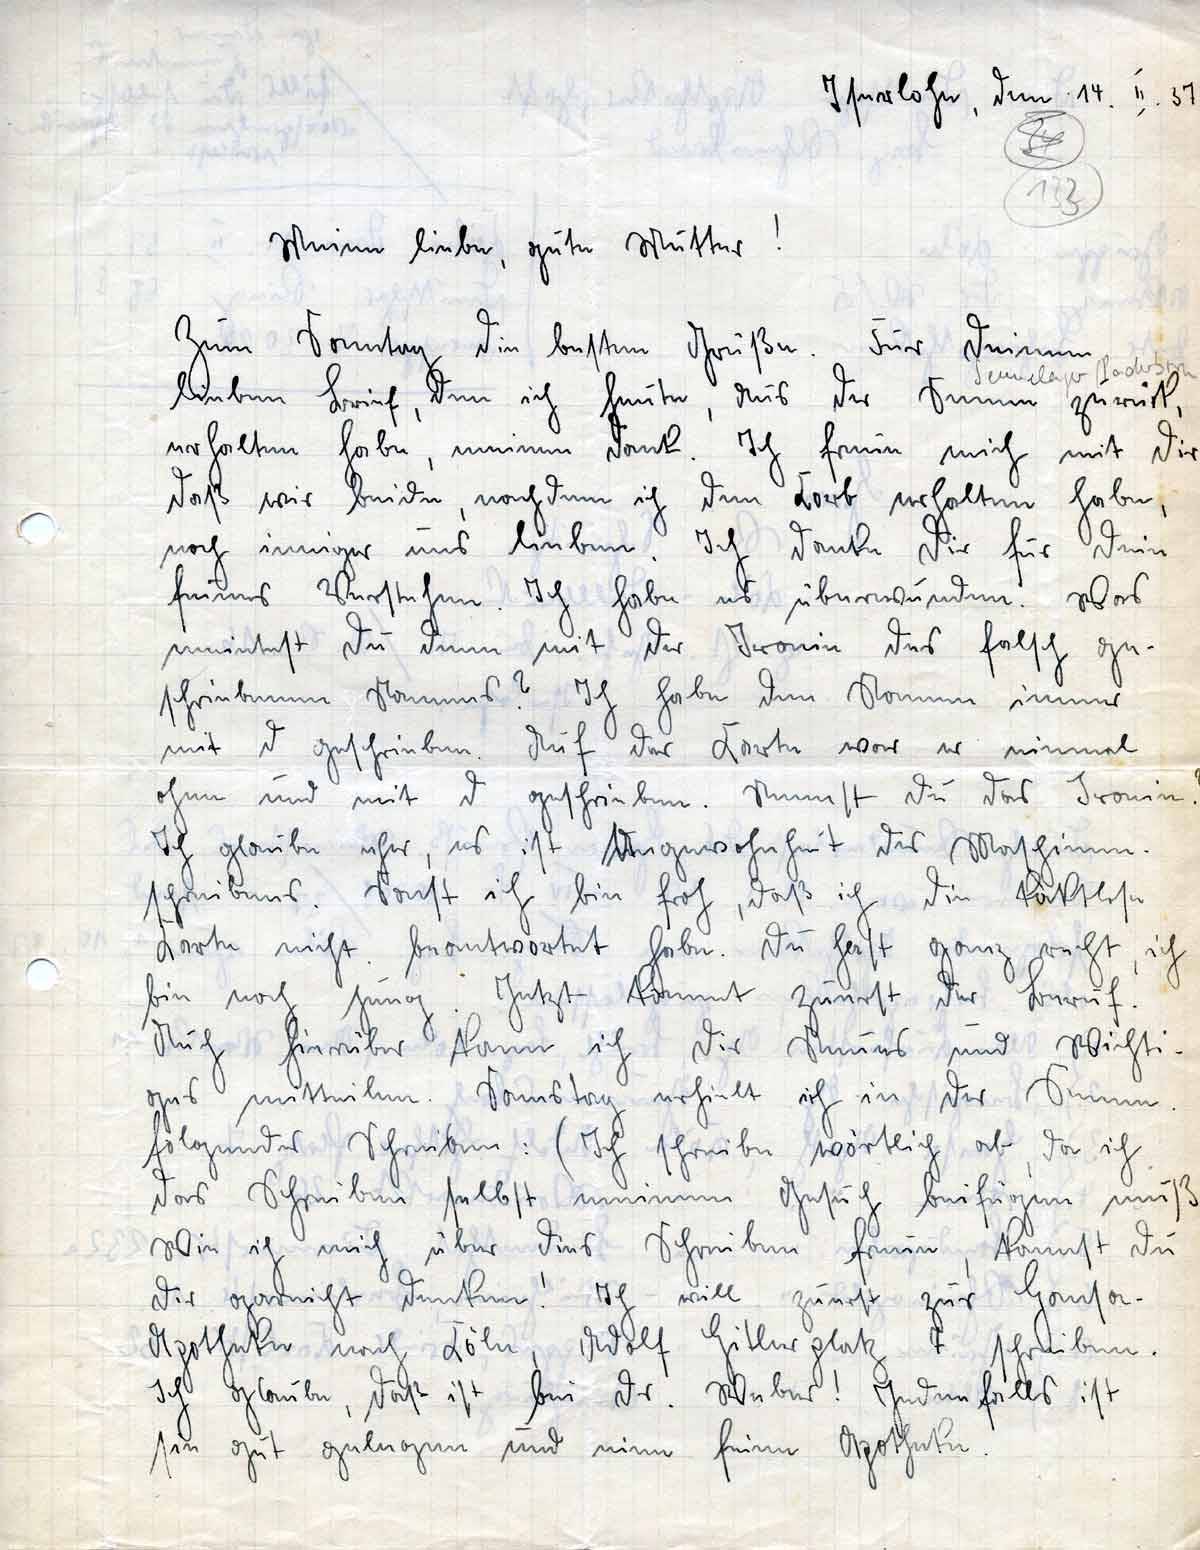 Iserlohn, den 14. II. 37
34
133
Meine liebe, gute Mutter!
Zum Sonntag die besten Grüße. Für Deinen
Sennelager Paderborn
lieben Brief, den ich heute, aus der Senne zurück,
erhalten habe, meinen Dank. Ich freue mich mit Dir
daß wir beide, nachdem ich den Korb erhalten habe,
noch inniger uns lieben. Ich danke Dir für Dein
feines Verstehen. Ich habe es überwunden. Was
meintest Du denn mit der Ironie des falsch ge-
schriebenen Namens? Ich habe den Namen immer
mit d geschrieben. Auf der Karte war er einmal
ohne und mit d geschrieben. Nennst Du das Ironie?
Ich glaube eher, es ist Ungewohnheit des Maschinen-
schreibens. Sonst ich bin froh, daß ich die taktlose
Karte nicht beantwortet habe. Du hast ganz recht, ich
bin noch jung. Jetzt kommt zuerst der Beruf.
Auch hierüber kann ich Dir Neues und Wichti-
ges mitteilen. Samstag erhielt ich in der Senne
folgendes Schreiben: (Ich schreibe wörtlich ab, da ich
das Schreiben selbst meinem Gesuch beifügen muß
Wie ich mich über dies Schreiben freue, kannst Du
Dir garnicht denken! Ich will zuerst zur Hansa-
Apotheke nach Köln, Adolf Hitlerplatz 7 schreiben.
Ich glaube, daß ist bei Dr. Weber! Jedenfalls ist
sie gut gelegen und eine feine Apotheke.